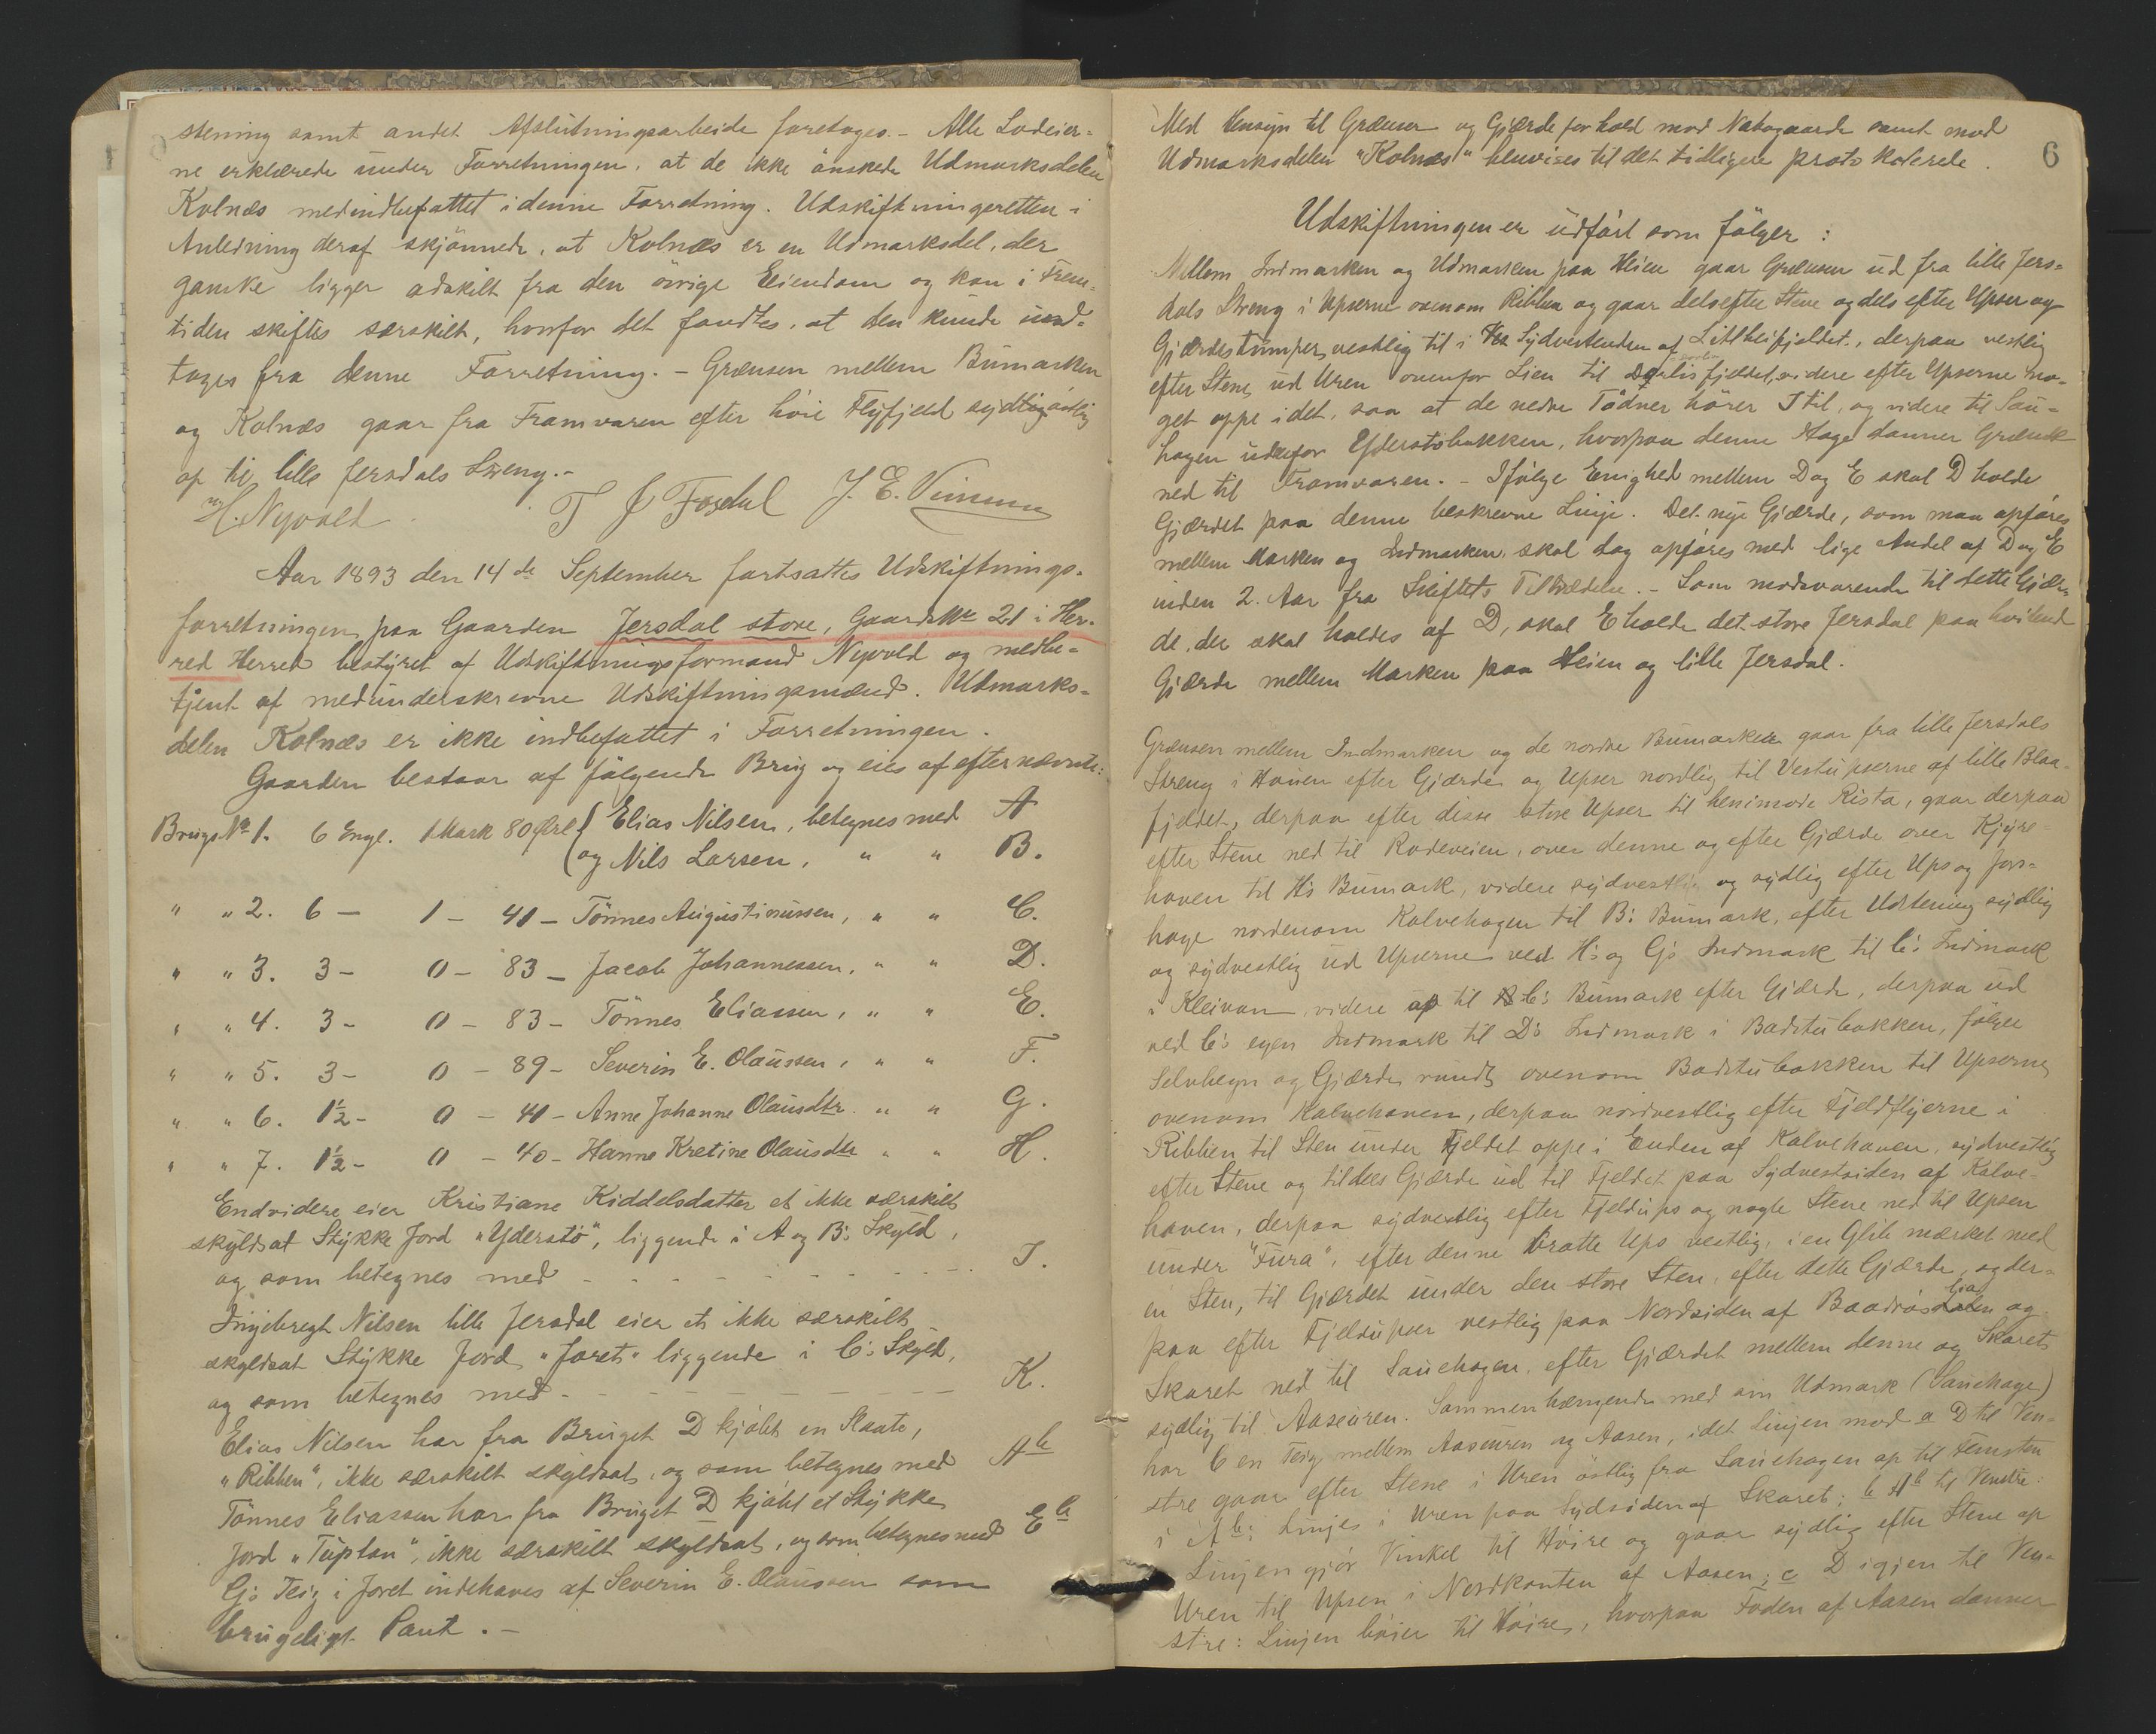 stening samt andet Afslutningsarbeide foretages. - Alle Lodeier-
ne erklærede under Forretningen, at de ikke önskede Udmarksdelen
Kolnæs medindbefattet i denne Forretning. Udskiftningsretten i
Anledning deraf skjönnede, at Kolnæs er en Udmarksdel, der
ganske ligger adskilt fra den övrige Eiendom og kan i Frem-
tiden skiftes særskilt, hvorfor det fandtes, at den kunde und-
tages fra denne Forretning. - Grænsen mellem Bumarken
og Kolnæs gaar fra Framvaren efter höie Flyfjeld sydligöstlig
op til lille Jersdals Streng. -
H. Nyvold T J Fosdal J. E. Vinsnes
Aar 1893 den 14de September fortsattes Udskiftnings-
forretningen paa Gaarden Jersdal store, Gaards No 21 i Her-
red Herred bestyret af Udskiftningsformand Nyvold og medbe-
tjent af medunderskrevne Udskiftningsmænd. Udmarks-
delen Kolnæs er ikke indbefattet i Forretningen.
Gaarden bestaar af fölgende Brug og eies af efternævnte:
Brugs No 1. 6 Engl. 1 Mark 80 Öre { Elias Nilsen, betegnes med A
og Nils Larsen, " " B.
" " 2. 6 - 1 - 41 - Tönnes Augustinussen, " " C.
" " 3. 3 - 0 - 83 - Jacob Johannessen, " " D.
" " 4. 3 - 0 - 83 - Tönnes Eliassen, " " E.
" " 5. 3 - 0 - 89 - Severin E. Olaussen, " " F.
" " 6. 1½ - 0 - 41 - Anne Johanne Olausdtr. " " G.
" " 7. 1½ - 0 - 40 - Hanne Kretine Olausdtr " " H.
Endvidere eier Kristiane Kiddelsdatter et ikke særskilt
skyldsat Stykke Jord "Yderstö", liggende i A og B's Skyld,
og som betegnes med - - - - - - - - - J.
Ingebregt Nilsen lille Jersdal eier et ikke særskilt
skyldsat Stykke Jord "Joret" liggende i C's Skyld,
og som betegnes med - - - - - - - - - K.
Elias Nilsen har fra Bruget D kjöbt en Slaate,
"Ribben", ikke særskilt skyldsat, og som betegnes med Ab
Tönnes Eliassen har fra Bruget D kjöbt et Stykke
Jord "Tuptan", ikke særskilt skyldsat, og som betegnes med Eb
G's Teig i Joret indehaves af Severin E. Olaussen som
brugeligt Pant. -
6
Med Hensyn til Grænser og Gjærdeforhold mod Nabogaarde samt mod
Udmarksdelen "Kolnæs" henvises til det tidligere protokolerede.
Udskiftningen er udfört som fölger:
Mellem Indmarken og Udmarken paa Heien gaar Grænsen ud fra lille Jers-
dals Streng i Upserne ovenom Ribben og gaar dels efter Stene og dels efter Upser og
Gjærdestumper vestlig til i Sydvestenden af Litlheifjeldet, derpaa vestlig
efter Stene ud Uren ovenfor Lien til fjeldet, videre efter Upserne no-
get oppe i det, saa at de nedre Tödner hörer J til, og videre til Sau-
hagen udenfor Yderstöbakken, hvorpaa denne Hage danner Grænse
ned til Framvaren. - Ifölge Enighed mellem D og E skal D holde
Gjærdet paa denne beskrevne Linje. Det nye Gjærde, som maa opföres
mellem Marken og Indmarken, skal dog opföres med lige Andel af D og E
inden 2. Aar fra Skiftets Tiltrædelse. - Som modsvarende til dette Gjær-
de, der skal holdes af D, skal E holde det store Jersdal paa hvilende
Gjærde mellem Marken paa Heien og lille Jersdal.
Grænsen mellem Indmarken og de nordre Bumarker gaar fra lille Jersdals
Streng i Haven efter Gjærde og Upser nordlig til Vestupserne af lille Blaa-
fjeldet, derpaa efter disse store Upser til henimod Rista, gaar derpaa
efter Stene ned til Rodeveien, over denne og efter Gjærde over Kjyre-
haven til H's Bumark, videre sydvestlig og sydlig efter Ups og Jors-
hage nordenom Kalvehagen til B's Bumark, efter Udstening sydlig
og sydvestlig ud Upserne ved H's og G's Indmark til C's Indmark
i Kleivan, videre op til C's Bumark efter Gjærde, derpaa ud
ved C's egen Indmark til D's Indmark i Badstubakken, fölger
Selvhegn og Gjærde rundt ovenom Badstubakken til Upserne
ovenom Kalvehaven, derpaa nordvestlig efter Fjeldflyerne i
Ribben til Sten under Fjeldet oppe i Enden af Kalvehaven, sydvestlig
efter Stene og tildels Gjærde ud til Fjeldet paa Sydvestsiden af Kalve-
haven, derpaa sydvestlig efter Fjeldups og nogle Stene ned til Upsen
under "Fura", efter denne bratte Ups vestlig, i en Glibe mærket med
en Sten, til Gjærdet under den store Sten, efter dette Gjærde, og der-
paa efter Fjeldupser vestlig paa Nordsiden af og
Skaret ned til Sauehagen, efter Gjærdet mellem denne og Skaret
sydlig til Aaseuren. Sammenhængende med sin Udmark (Sauehage)
har C en Teig mellem Aaseuren og Aasen, idet Linjen mod a D til Ven-
stre gaar efter Stene i Uren östlig fra Sauehagen op til Femsten
i Ab's Linje i Uren paa Sydsiden af Skaret; b Ab til Venstre:
Linjen gjör Vinkel til Höire og gaar sydlig efter Stene op
Uren til Upsen i Nordkanten af Aasen; c D igjen til Ven-
stre: Linjen böier til Höire, hvorpaa Foden af Aasen danner